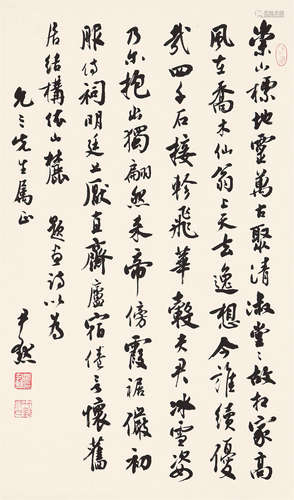 崇山標地靈萬古聚清淑堂堂故相家高
風在喬木仙翁上天去逸想今誰續優
哉四千石接軫飛華轂夫君冰雪姿
乃爾抱獨翩然來帝傍霞裾儼初
服侍祠明廷上厭直齋廬宿倦言懷舊
居結構依山麓 題畫詩以為
允之先生屬正
尹默